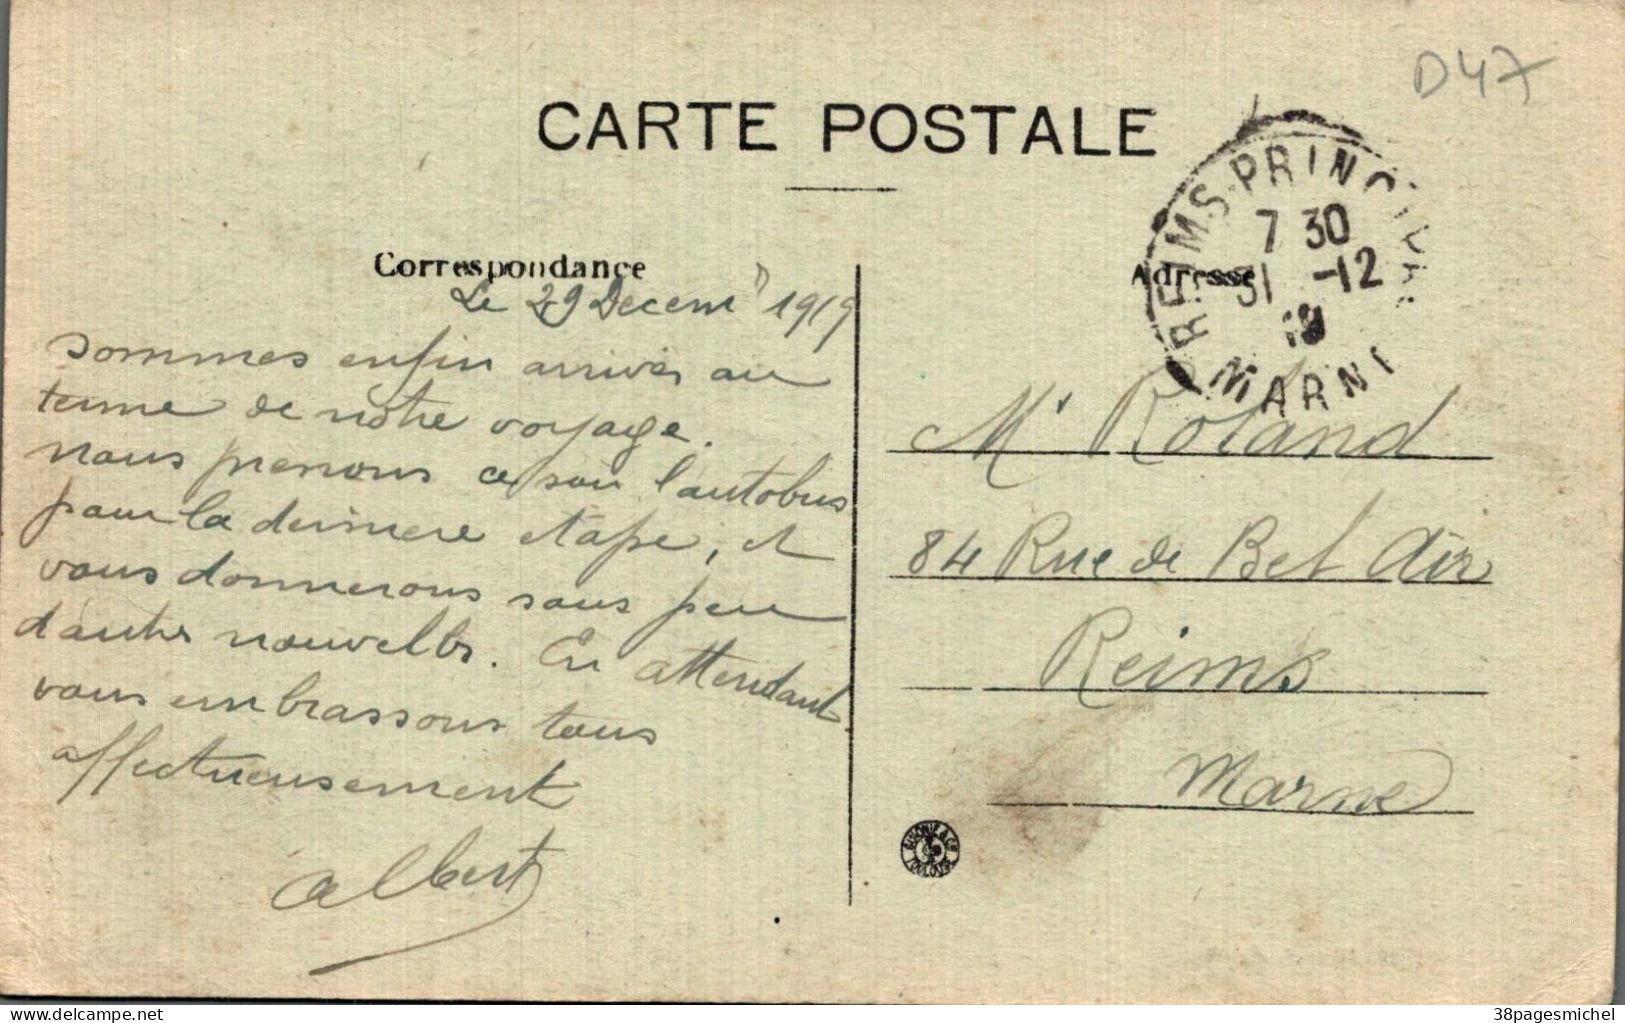 D47
CARTE POSTALE
REIMS-PRINCIPAL
7 30
31 -12
19
MARNE
Correspondance
Adresse
Le 29 Decem 1919
sommes enfin arrivés au
terme de nôtre voyage.
nous prenons ce soir l'autobus
pour la dernière etape, et
vous donnerons sous peu
d'autres nouvelles. En attendant
vous embrassons tous
affectueusement
Albert
Mr Roland
84 Rue de Bel Air
Reims
Marne
TOULOUSE
Delcampe.net
38pagesmichel